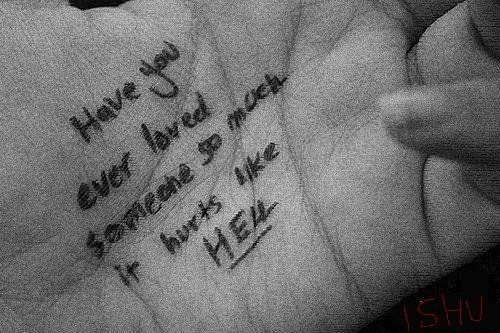 Have you
ever loved
someone so much
it hurts like
HELL
ISHU